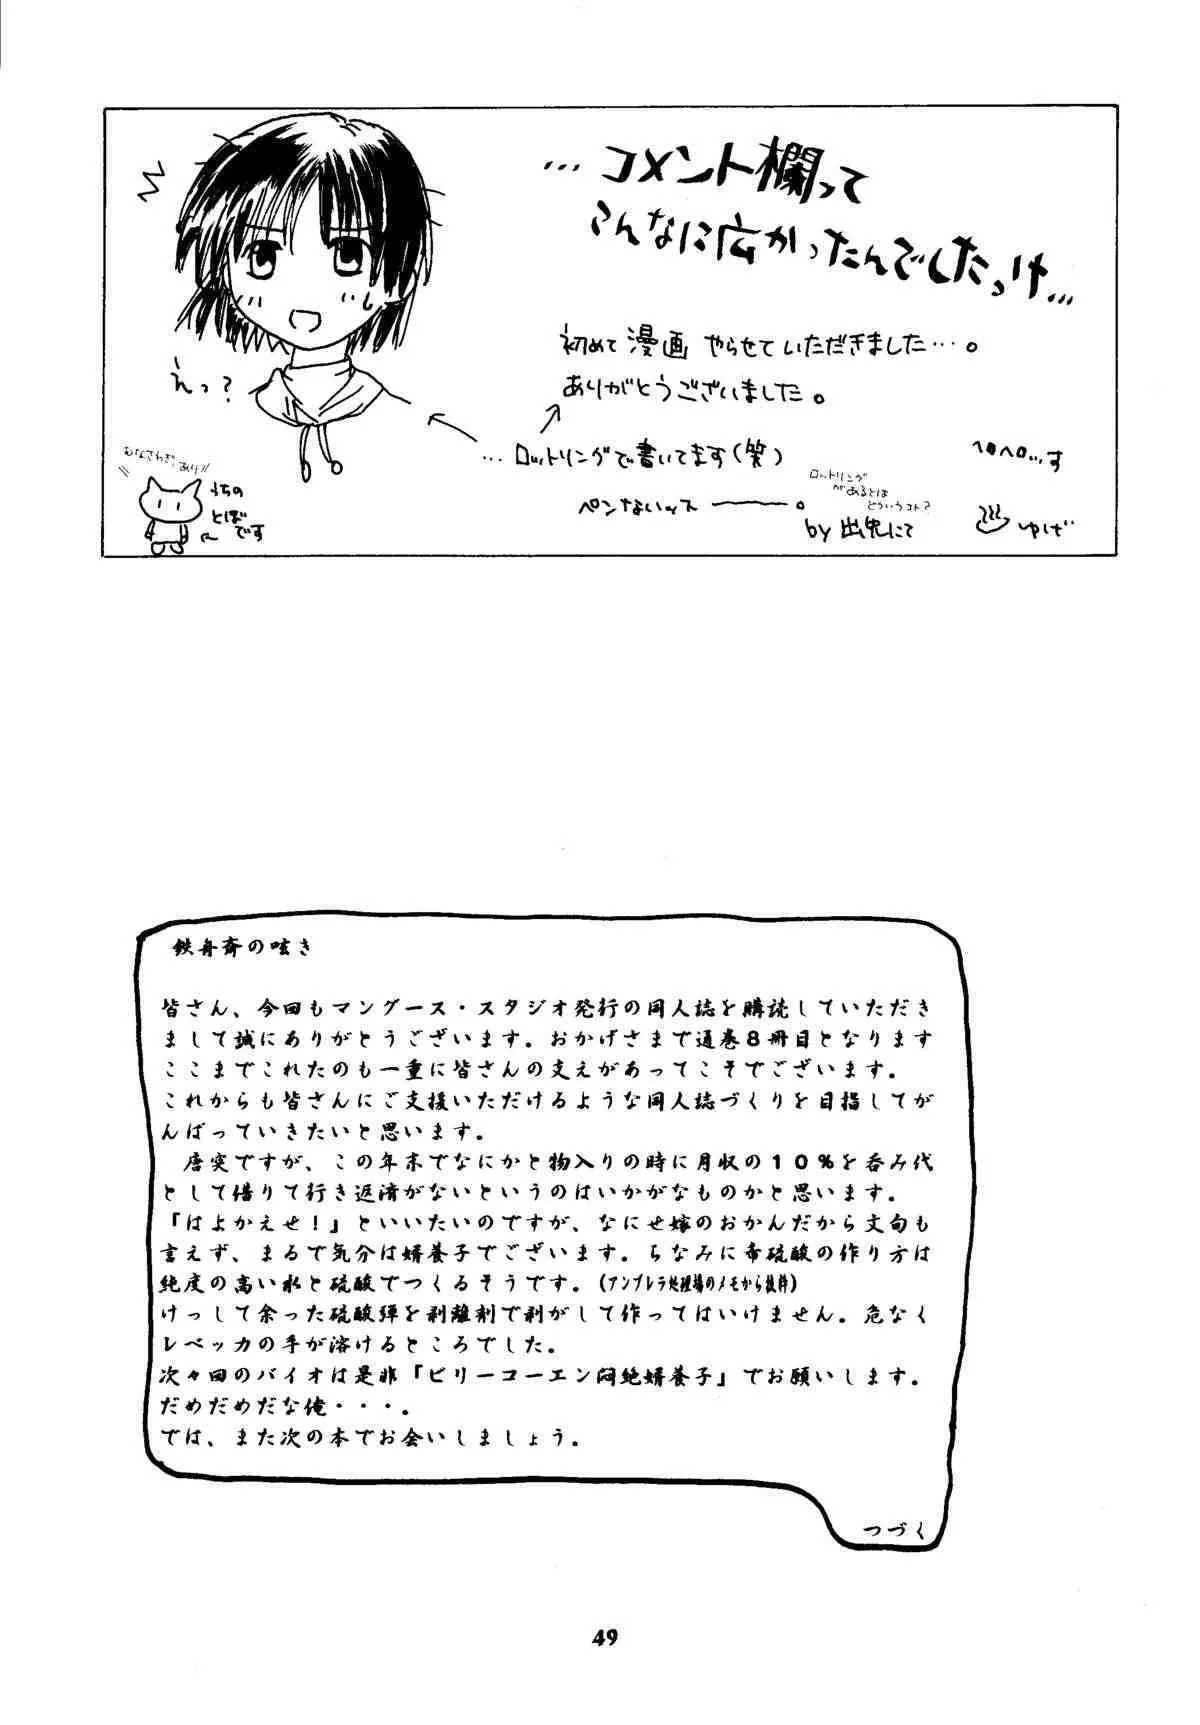 …コメント欄って
こんなに広かったんでしたっけ…
初めて漫画やらせていただきました…。
ありがとうございました。
えっ?
…ロットリングで書いてます(笑)
ヘロヘロっす
むなさわぎあり
うちの
とぼ
です
ロットリング
があるとは
どういうコト?
ペンないッス――。
by 出先にて
ゆげ
鉄舟斎の呟き
皆さん、今回もマングース・スタジオ発行の同人誌を購読していただき
まして誠にありがとうございます。おかげさまで通巻8冊目となります
ここまでこれたのも一重に皆さんの支えがあってこそでございます。
これからも皆さんにご支援いただけるような同人誌づくりを目指してが
んばっていきたいと思います。
唐突ですが、この年末でなにかと物入りの時に月収の10%を呑み代
として借りて行き返済がないというのはいかがなものかと思います。
『はよかえせ!』といいたいのですが、なにせ嫁のおかんだから文句も
言えず、まるで気分は婿養子でございます。ちなみに希硫酸の作り方は
純度の高い水と硫酸でつくるそうです。(アンブレラ処理場のメモから抜粋)
けっして余った硫酸弾を剥離剤で剥がして作ってはいけません。危なく
レベッカの手が溶けるところでした。
次々回のバイオは是非「ビリーコーエン悶絶婿養子」でお願いします。
だめだめだな俺・・・。
では、また次の本でお会いしましょう。
つづく
49